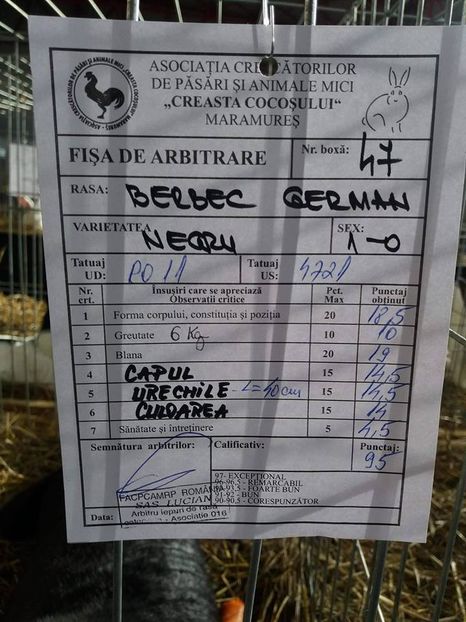 ASOCIAȚIA CRESCĂTORILOR
DE PĂSĂRI ȘI ANIMALE MICI
„CREASTA COCOȘULUI“
MARAMUREȘ
FIȘA DE ARBITRARE
Nr. boxă: 47
RASA: BERBEC GERMAN
VARIETATEA NEGRU
SEX: 1-0
Tatuaj UD: RO 11
Tatuaj US: 4721
Nr. crt. Însușiri care se apreciază Observații critice Pct. Max Punctaj obținut
1 Forma corpului, constituția și poziția 20 18,5
2 Greutate 6 Kg 10 10
3 Blana 20 19
4 CAPUL 15 14,5
5 URECHILE - L=40cm 15 14,5
6 CULOAREA 15 14
7 Sănătate și întreținere 5 4,5
Semnătura arbitrilor:
Calificativ:
Punctaj: 95
97- EXCEPȚIONAL
96-96,5 - REMARCABIL
93,5 - FOARTE BUN
91-92 - BUN
90-90,5 - CORESPUNZĂTOR
FACPCAMRP ROMÂNIA
SAS LUCIAN
Arbitru iepuri de rasă
Asociație 016
Data: